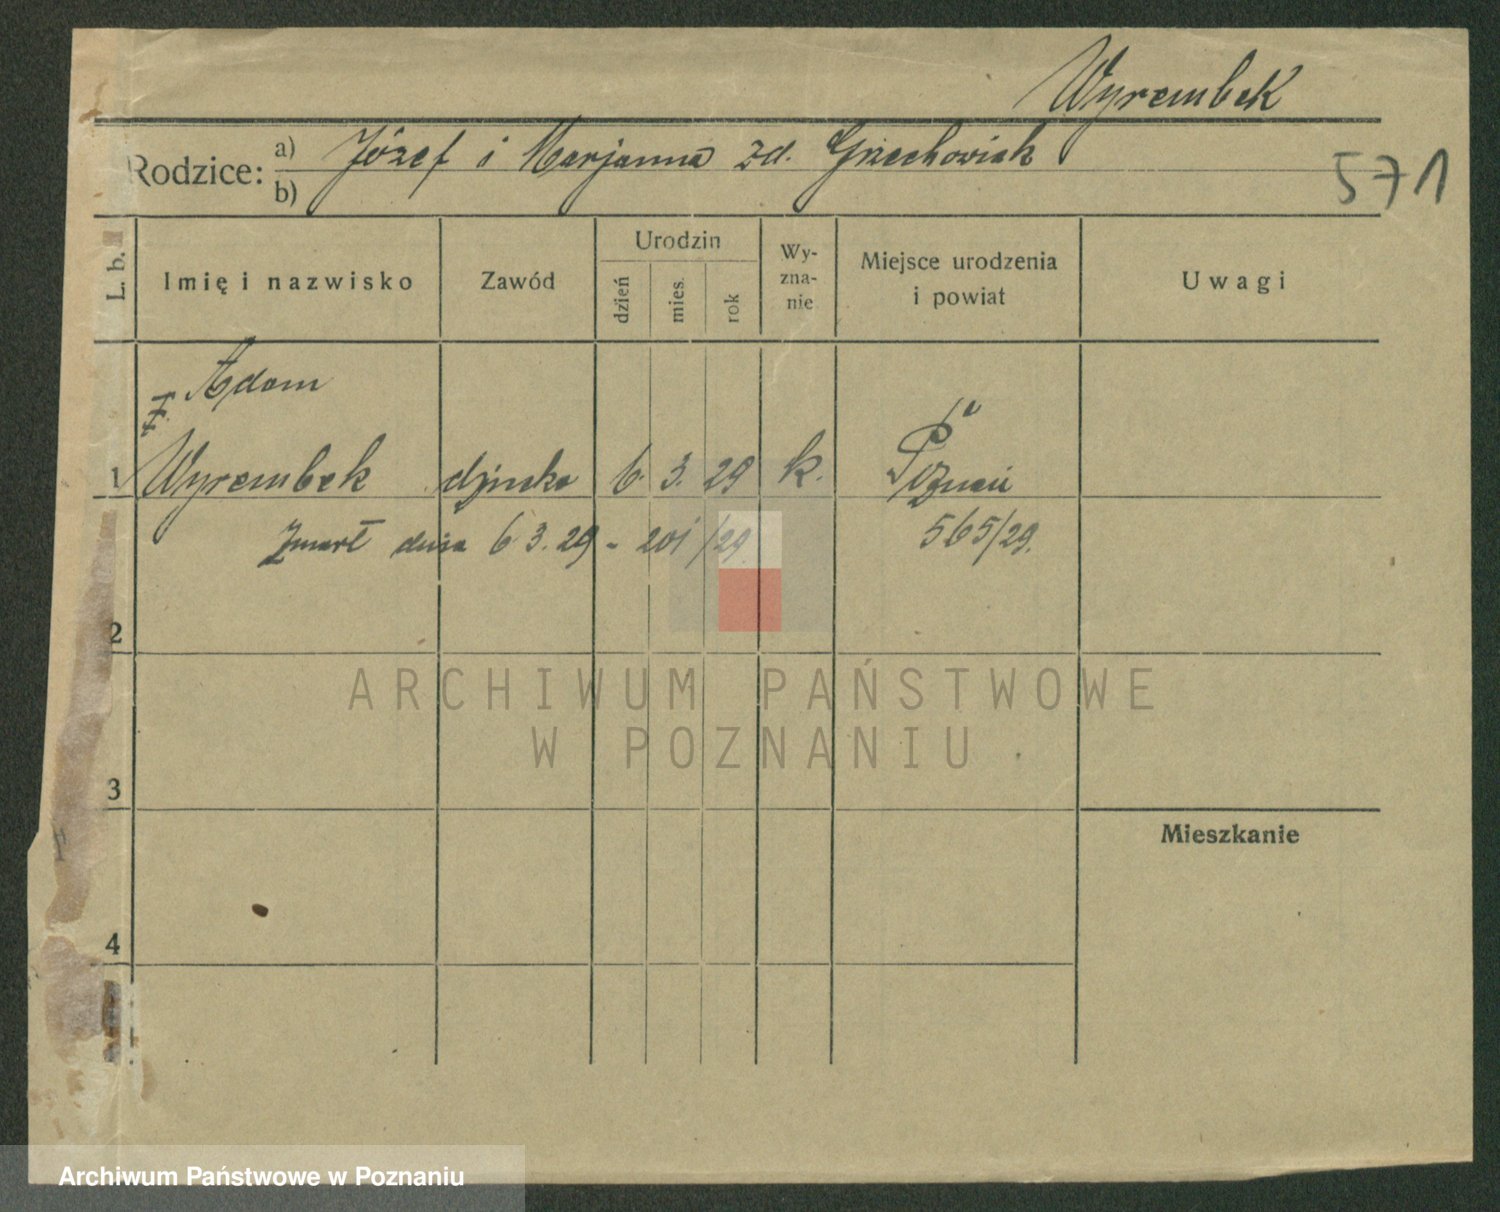 Wyrembek
Rodzice: a) Józef i Marjanna zd. Grzechowiak
b)
571
L. b.
Imię i nazwisko
Zawód
Urodzin
dzień
mies.
rok
Wy-
zna-
nie
Miejsce urodzenia
i powiat
Uwagi
Adam
1 Wyrembek 6. 3. 29 k. Poznań
Zmarł dnia 6 3. 29 - 201/29. 565/29.
2
ARCHIWUM PAŃSTWOWE
W POZNANIU
3
Mieszkanie
4
Archiwum Państwowe w Poznaniu